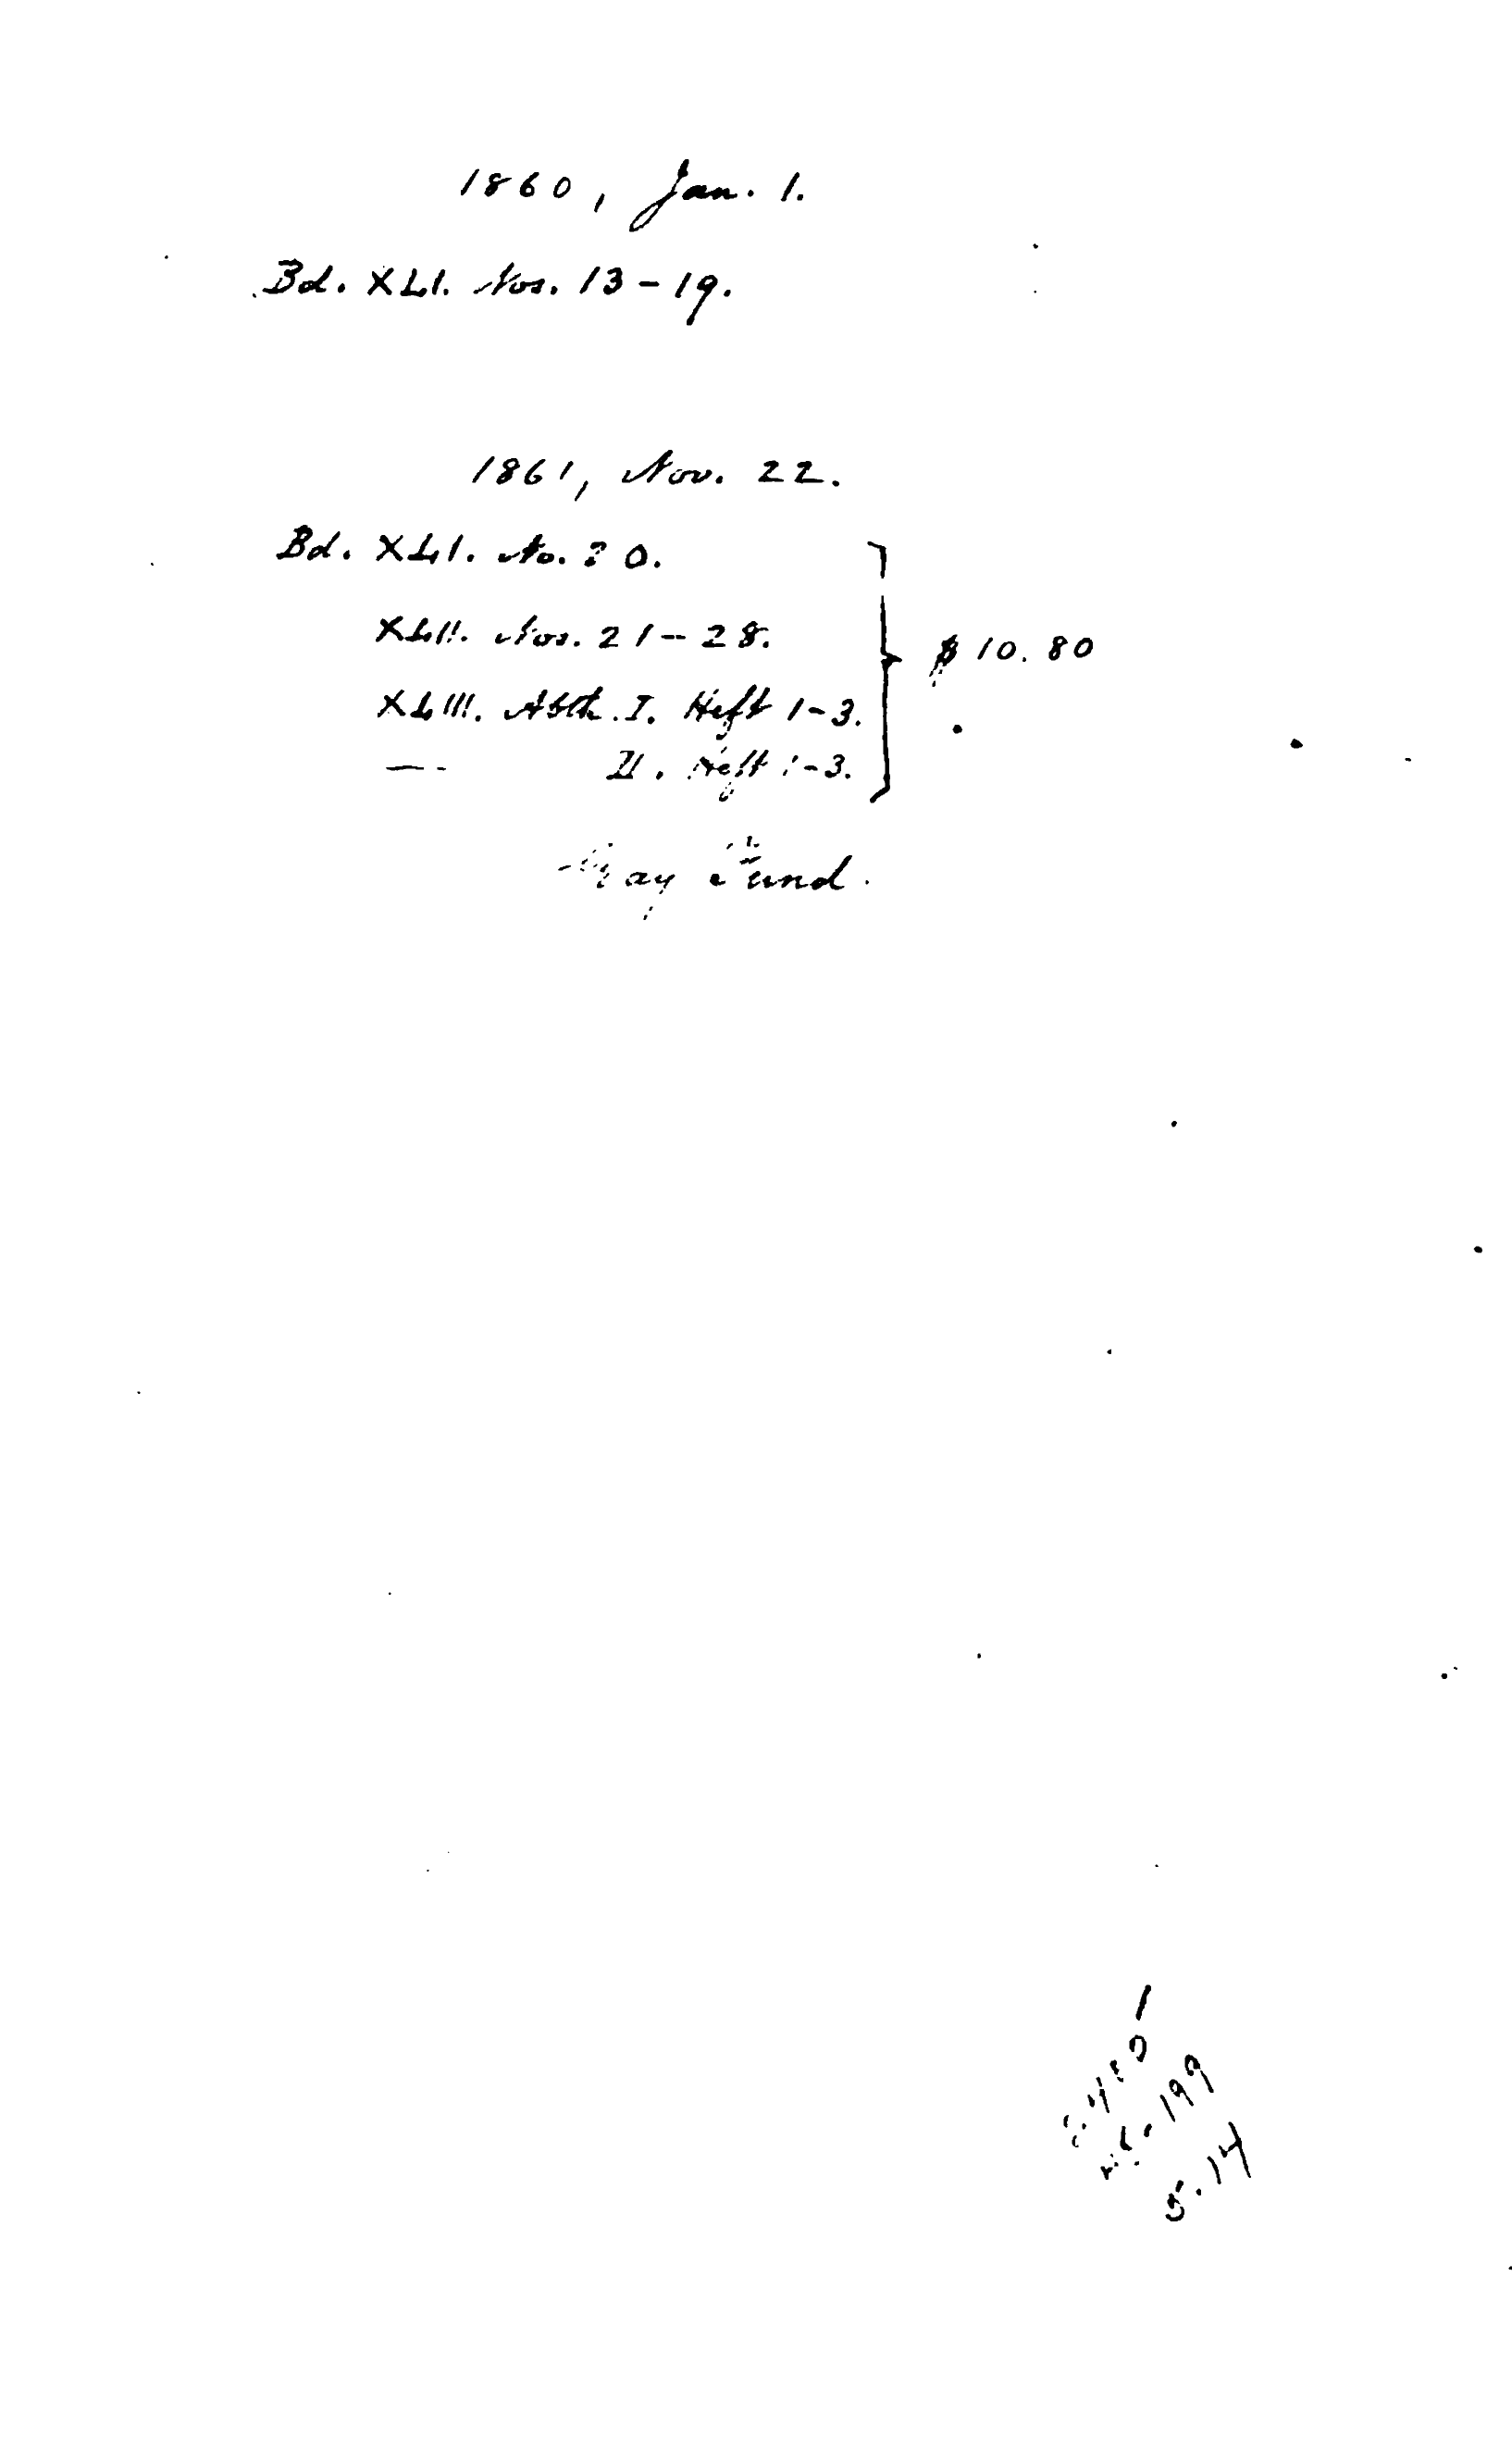 1860, Jan. 1.
Bd. XLI. Nos. 13-19.
1861, Nov. 22.
Bd. XLI. No. 20.
XLII. Nos. 21-28.
$10.80
XLIII. Abth. I. Heft 1-3.
— II. Heft 1-3.
Fund.
1
199
5.14